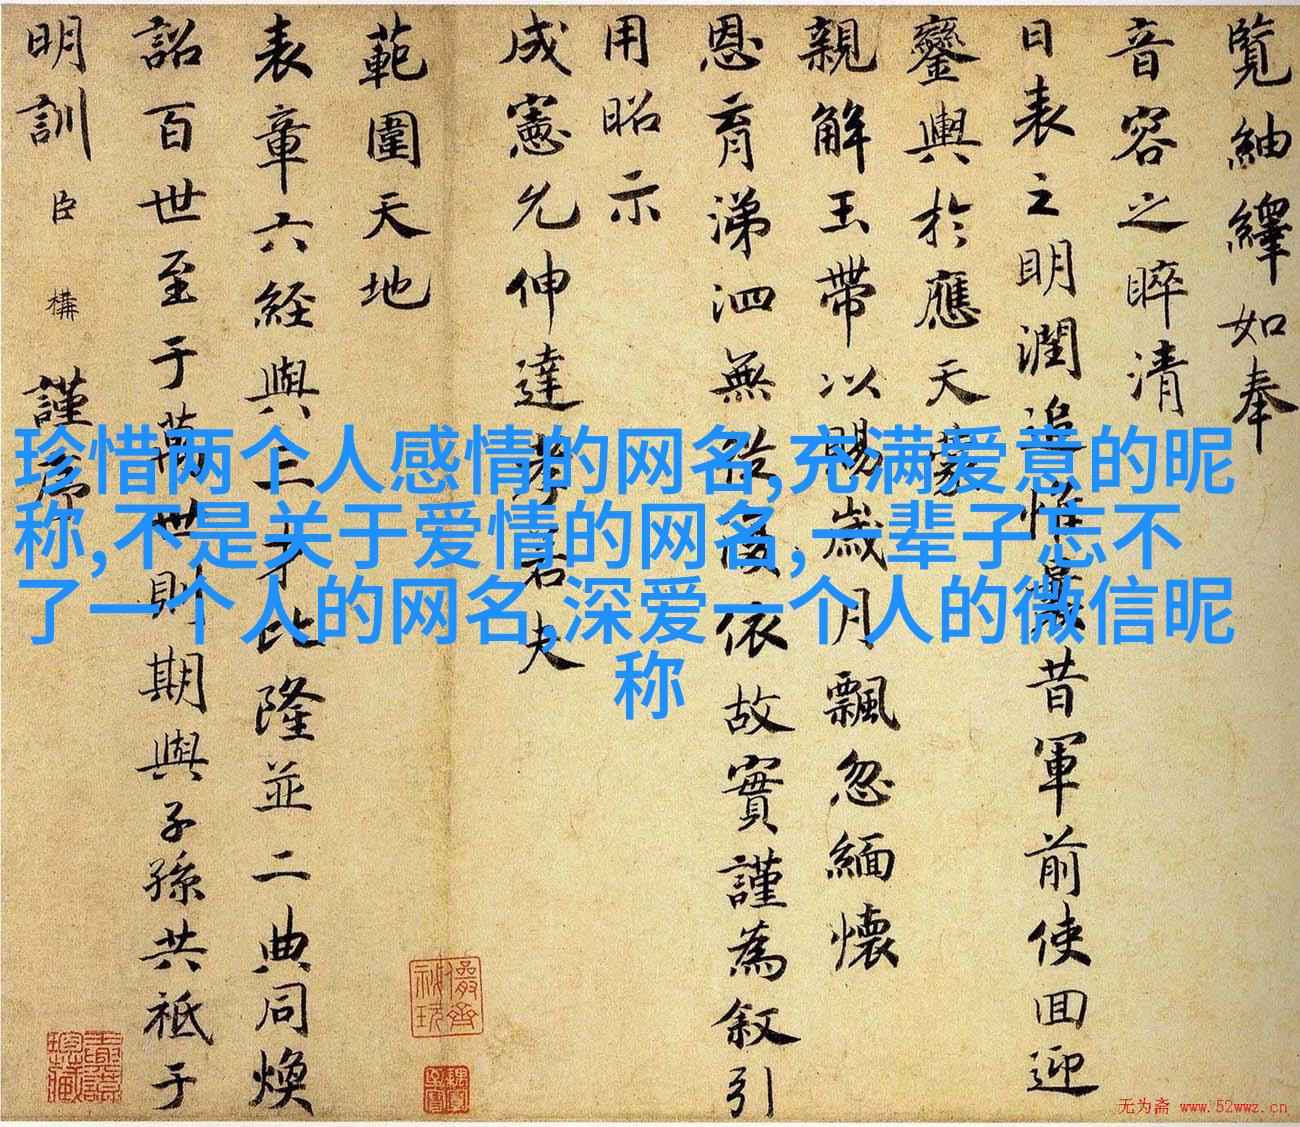 覽紬繹如奉
音容之睟清
日表之明潤追惟曩昔軍前使回迎
鑾輿於應天蒙
親解玉帶以賜歲月飄忽緬懷
恩育涕泗無依故實謹為叙引
用昭示
成憲允伸達孝若夫
範圍天地
表章六經與三才比隆並二典同煥
詔百世至于萬世則期與子孫共祗于
明訓臣構謹序
珍惜两个人感情的网名,充满爱意的昵
称,不是关于爱情的网名,一辈子忘不
了一个人的网名,深爱一个人的微信昵
称
无为斋 www.52wwz.cn